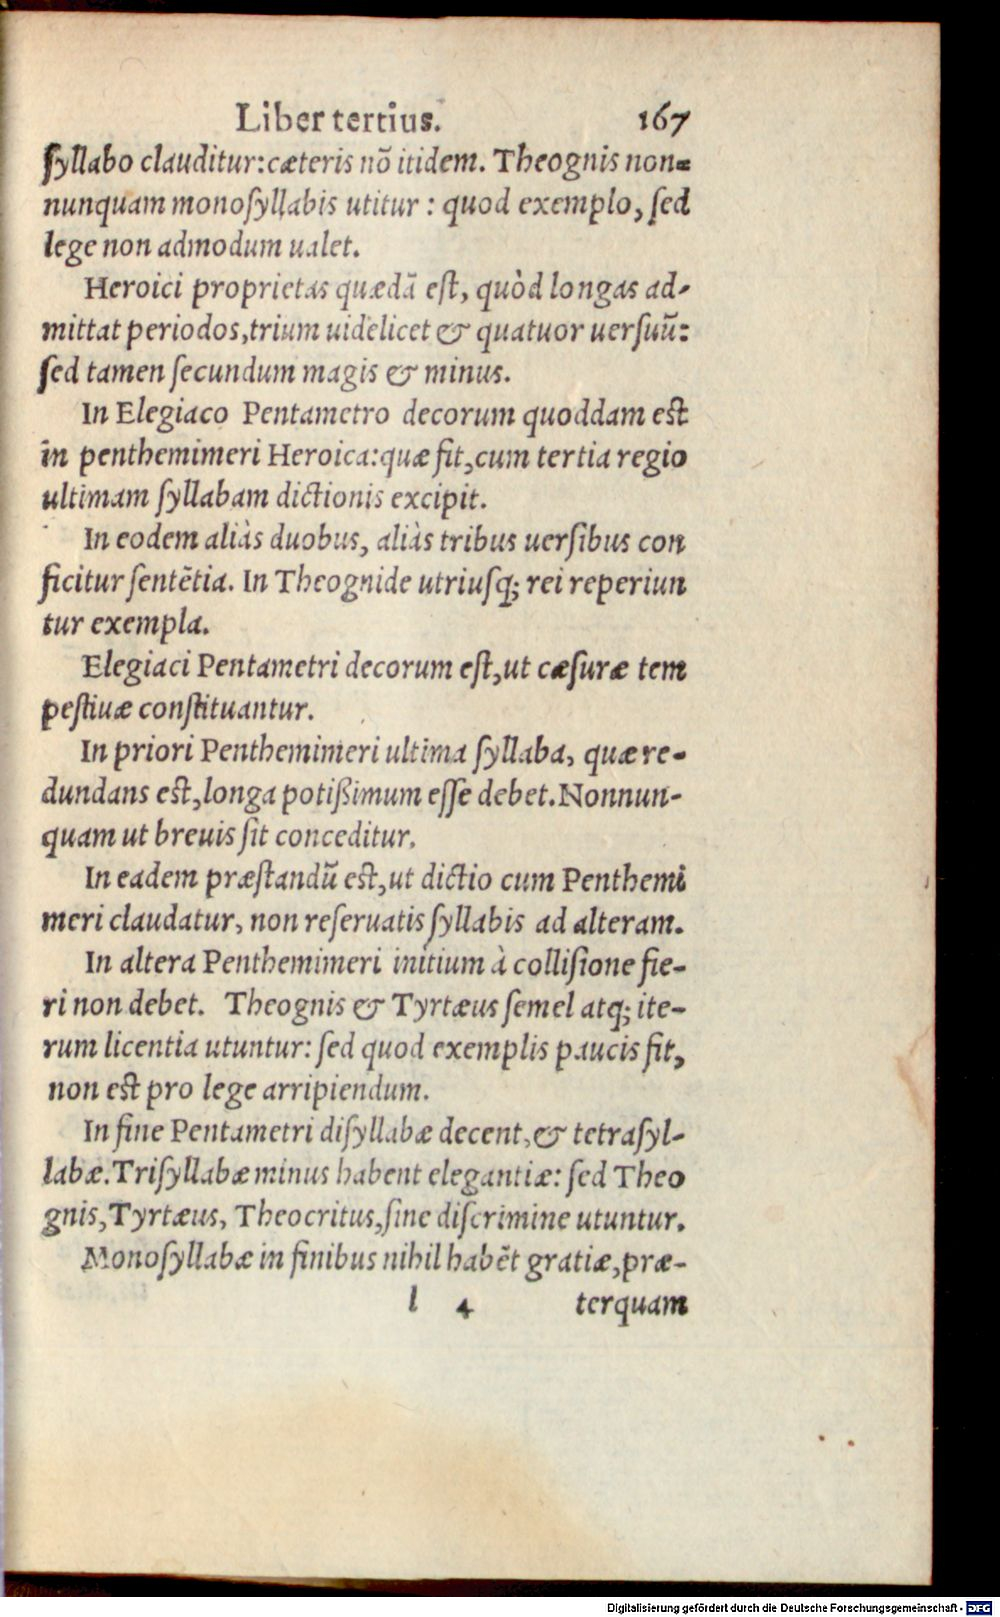 Liber tertius. 167
ſyllabo clauditur: cæteris nõ itidem. Theognis non-
nunquam monoſyllabis utitur : quod exemplo, ſed
lege non admodum ualet.
Heroici proprietas quædã eſt, quòd longas ad-
mittat periodos, trium uidelicet & quatuor uerſuũ:
ſed tamen ſecundum magis & minus.
In Elegiaco Pentametro decorum quoddam eſt
in penthemimeri Heroica: quæ fit, cum tertia regio
ultimam ſyllabam dictionis excipit.
In eodem aliàs duobus, aliàs tribus uerſibus con
ficitur ſentẽtia. In Theognide utriuſq; rei reperiun
tur exempla.
Elegiaci Pentametri decorum eſt, ut cæſuræ tem
peſtiuæ conſtituantur.
In priori Penthemimeri ultima ſyllaba, quæ re-
dundans eſt, longa potißimum eſſe debet. Nonnun-
quam ut breuis ſit conceditur.
In eadem præſtandũ eſt, ut dictio cum Penthemi
meri claudatur, non reſeruatis ſyllabis ad alteram.
In altera Penthemimeri initium à colliſione fie-
ri non debet. Theognis & Tyrtæus ſemel atq; ite-
rum licentia utuntur: ſed quod exemplis paucis fit,
non eſt pro lege arripiendum.
In fine Pentametri diſyllabæ decent, & tetraſyl-
labæ. Triſyllabæ minus habent elegantiæ: ſed Theo
gnis, Tyrtæus, Theocritus, ſine diſcrimine utuntur.
Monoſyllabæ in finibus nihil habẽt gratiæ, præ-
l 4 terquam
Digitalisierung gefördert durch die Deutsche Forschungsgemeinschaft - DFG